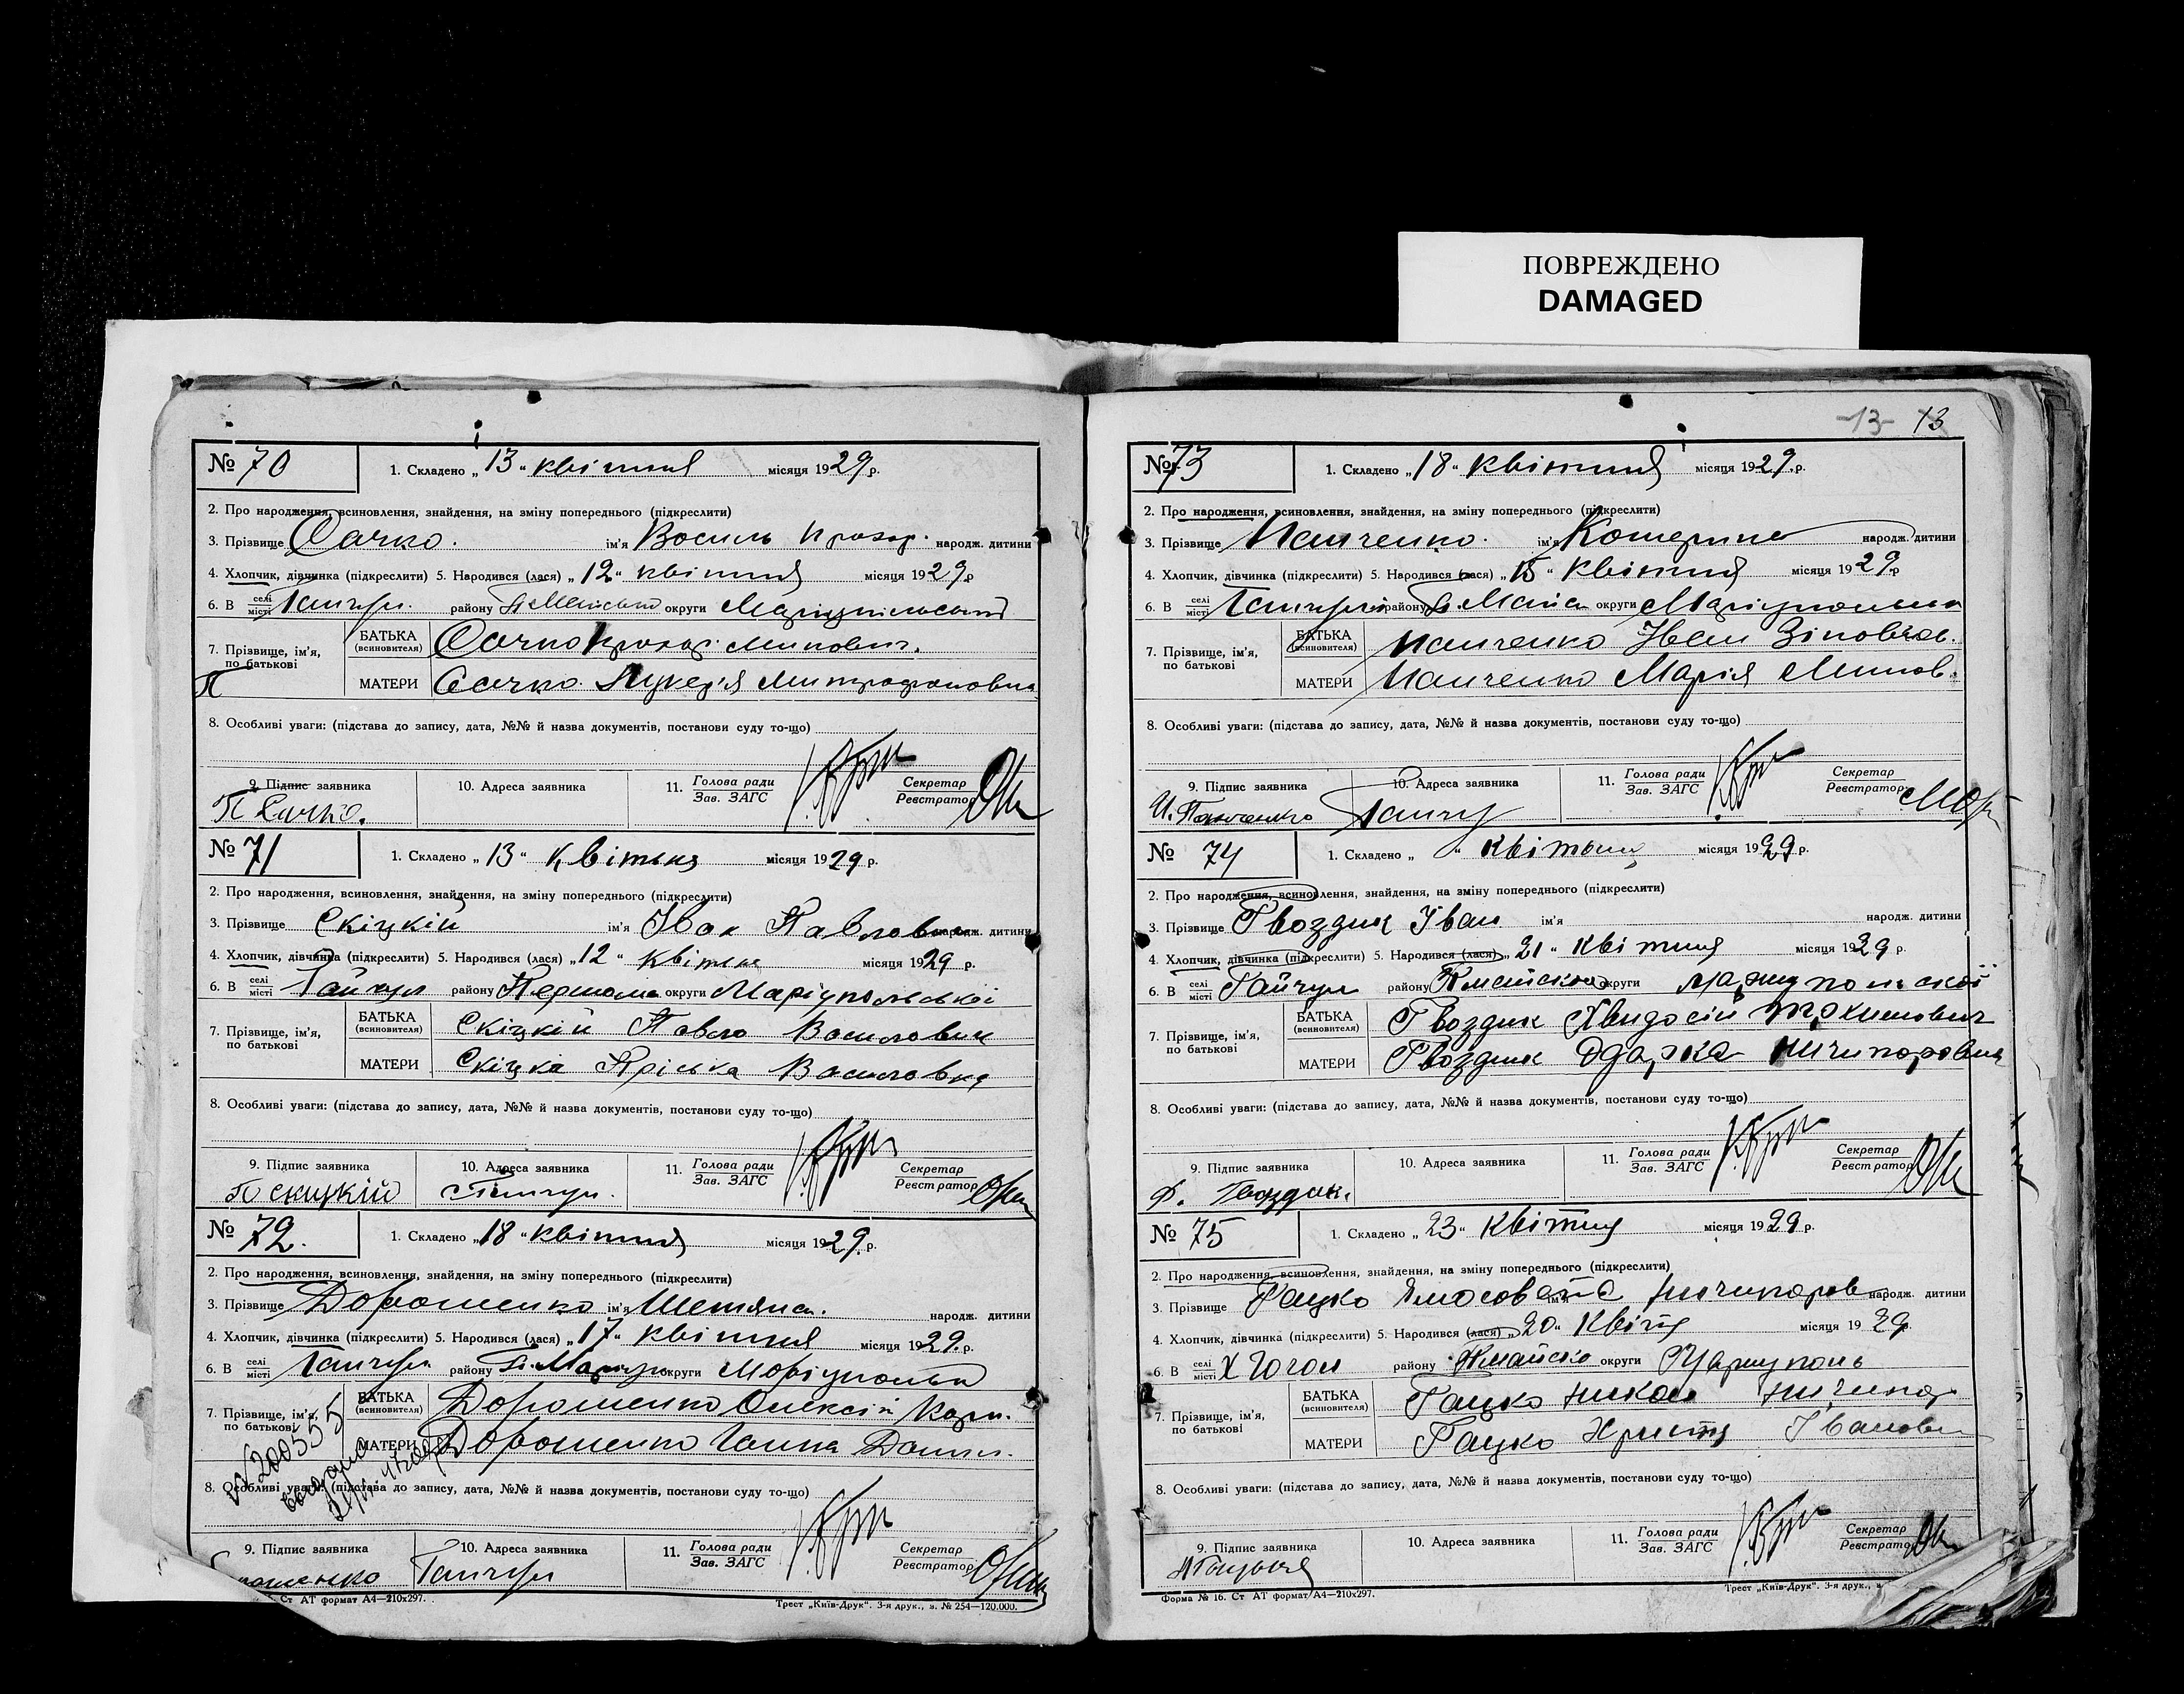 ПОВРЕЖДЕНО
DAMAGED
№ 70
1. Складено „13“ квітня місяця 1929 р.
2. Про народження, всиновлення, знайдення, на зміну попереднього (підкреслити)
3. Прізвище Сачко. ім'я Восиль Прохор. народж. дитини
4. Хлопчик, дівчинка (підкреслити) 5. Народився (лася) „12“ квітня місяця 1929 р
6. В селі місті Гайчул району округи
7. Прізвище, ім'я, по батькові
БАТЬКА (всиновителя) Сачко Прохор Минович.
МАТЕРИ Сачко Лукер'я Митрофановна
8. Особливі уваги: (підстава до запису, дата, №№ й назва документів, постанови суду то-що)
9. Підпис заявника 10. Адреса заявника 11. Голова ради Зав. ЗАГС Секретар Реєстратор
П Сачко.
№ 71
1. Складено „13“ квітьня місяця 1929 р.
2. Про народження, всиновлення, знайдення, на зміну попереднього (підкреслити)
3. Прізвище Скіцкій ім'я Іван Павлович народж. дитини
4. Хлопчик, дівчинка (підкреслити) 5. Народився (лася) „12“ квітьня місяця 1929 р.
6. В селі місті Гайчул району округи Маріупольськоі
7. Прізвище, ім'я, по батькові
БАТЬКА (всиновителя) Скіцкій Павло Василович
МАТЕРИ Скіцка Пріська Василовна
8. Особливі уваги: (підстава до запису, дата, №№ й назва документів, постанови суду то-що)
9. Підпис заявника 10. Адреса заявника 11. Голова ради Зав. ЗАГС Секретар Реєстратор
П Скицкій Гайчул.
№ 72.
1. Складено „18“ квітня місяця 1929 р.
2. Про народження, всиновлення, знайдення, на зміну попереднього (підкреслити)
3. Прізвище Дорошенко ім'я народж. дитини
4. Хлопчик, дівчинка (підкреслити) 5. Народився (лася) „17“ квітня місяця 1929 р.
6. В селі місті Гайчул району округи
7. Прізвище, ім'я, по батькові
БАТЬКА (всиновителя) Дорошенко Олексій
МАТЕРИ Дорошенко Ганна
№200555
8. Особливі уваги: (підстава до запису, дата, №№ й назва документів, постанови суду то-що)
9. Підпис заявника 10. Адреса заявника 11. Голова ради Зав. ЗАГС Секретар Реєстратор
Гайчул
Ст АТ формат А4—210х297. Трест „Київ-Друк“. 3-я друк., з. № 254—120.000.
-13- 13
№ 73
1. Складено „18“ квітня місяця 1929 р.
2. Про народження, всиновлення, знайдення, на зміну попереднього (підкреслити)
3. Прізвище Панченко. ім'я Котерина народж. дитини
4. Хлопчик, дівчинка (підкреслити) 5. Народився (лася) „15“ квітня місяця 1929 р
6. В селі місті Гайчул району округи
7. Прізвище, ім'я, по батькові
БАТЬКА (всиновителя) Панченко Іван
МАТЕРИ Панченко Марія Минов.
8. Особливі уваги: (підстава до запису, дата, №№ й назва документів, постанови суду то-що)
9. Підпис заявника 10. Адреса заявника 11. Голова ради Зав. ЗАГС Секретар Реєстратор
И. Панченко
№ 74
1. Складено „ “ квітьня місяця 1929 р.
2. Про народження, всиновлення, знайдення, на зміну попереднього (підкреслити)
3. Прізвище Гвоздик Іван ім'я народж. дитини
4. Хлопчик, дівчинка (підкреслити) 5. Народився (лася) „21“ квітня місяця 1929 р.
6. В селі місті Гайчул району округи
7. Прізвище, ім'я, по батькові
БАТЬКА (всиновителя) Гвоздик
МАТЕРИ Гвоздик Одарка Ничипоровна
8. Особливі уваги: (підстава до запису, дата, №№ й назва документів, постанови суду то-що)
9. Підпис заявника 10. Адреса заявника 11. Голова ради Зав. ЗАГС Секретар Реєстратор
Гвоздик.
№ 75
1. Складено „23“ квітня місяця 1929 р.
2. Про народження, всиновлення, знайдення, на зміну попереднього (підкреслити)
3. Прізвище Гацко ім'я народж. дитини
4. Хлопчик, дівчинка (підкреслити) 5. Народився (лася) „20“ місяця 1929 р.
6. В селі місті району округи
7. Прізвище, ім'я, по батькові
БАТЬКА (всиновителя) Гацко
МАТЕРИ Гацко Христя
8. Особливі уваги: (підстава до запису, дата, №№ й назва документів, постанови суду то-що)
9. Підпис заявника 10. Адреса заявника 11. Голова ради Зав. ЗАГС Секретар Реєстратор
Форма № 16. Ст АТ формат А4—210х297. Трест „Київ-Друк“. 3-я друк.,